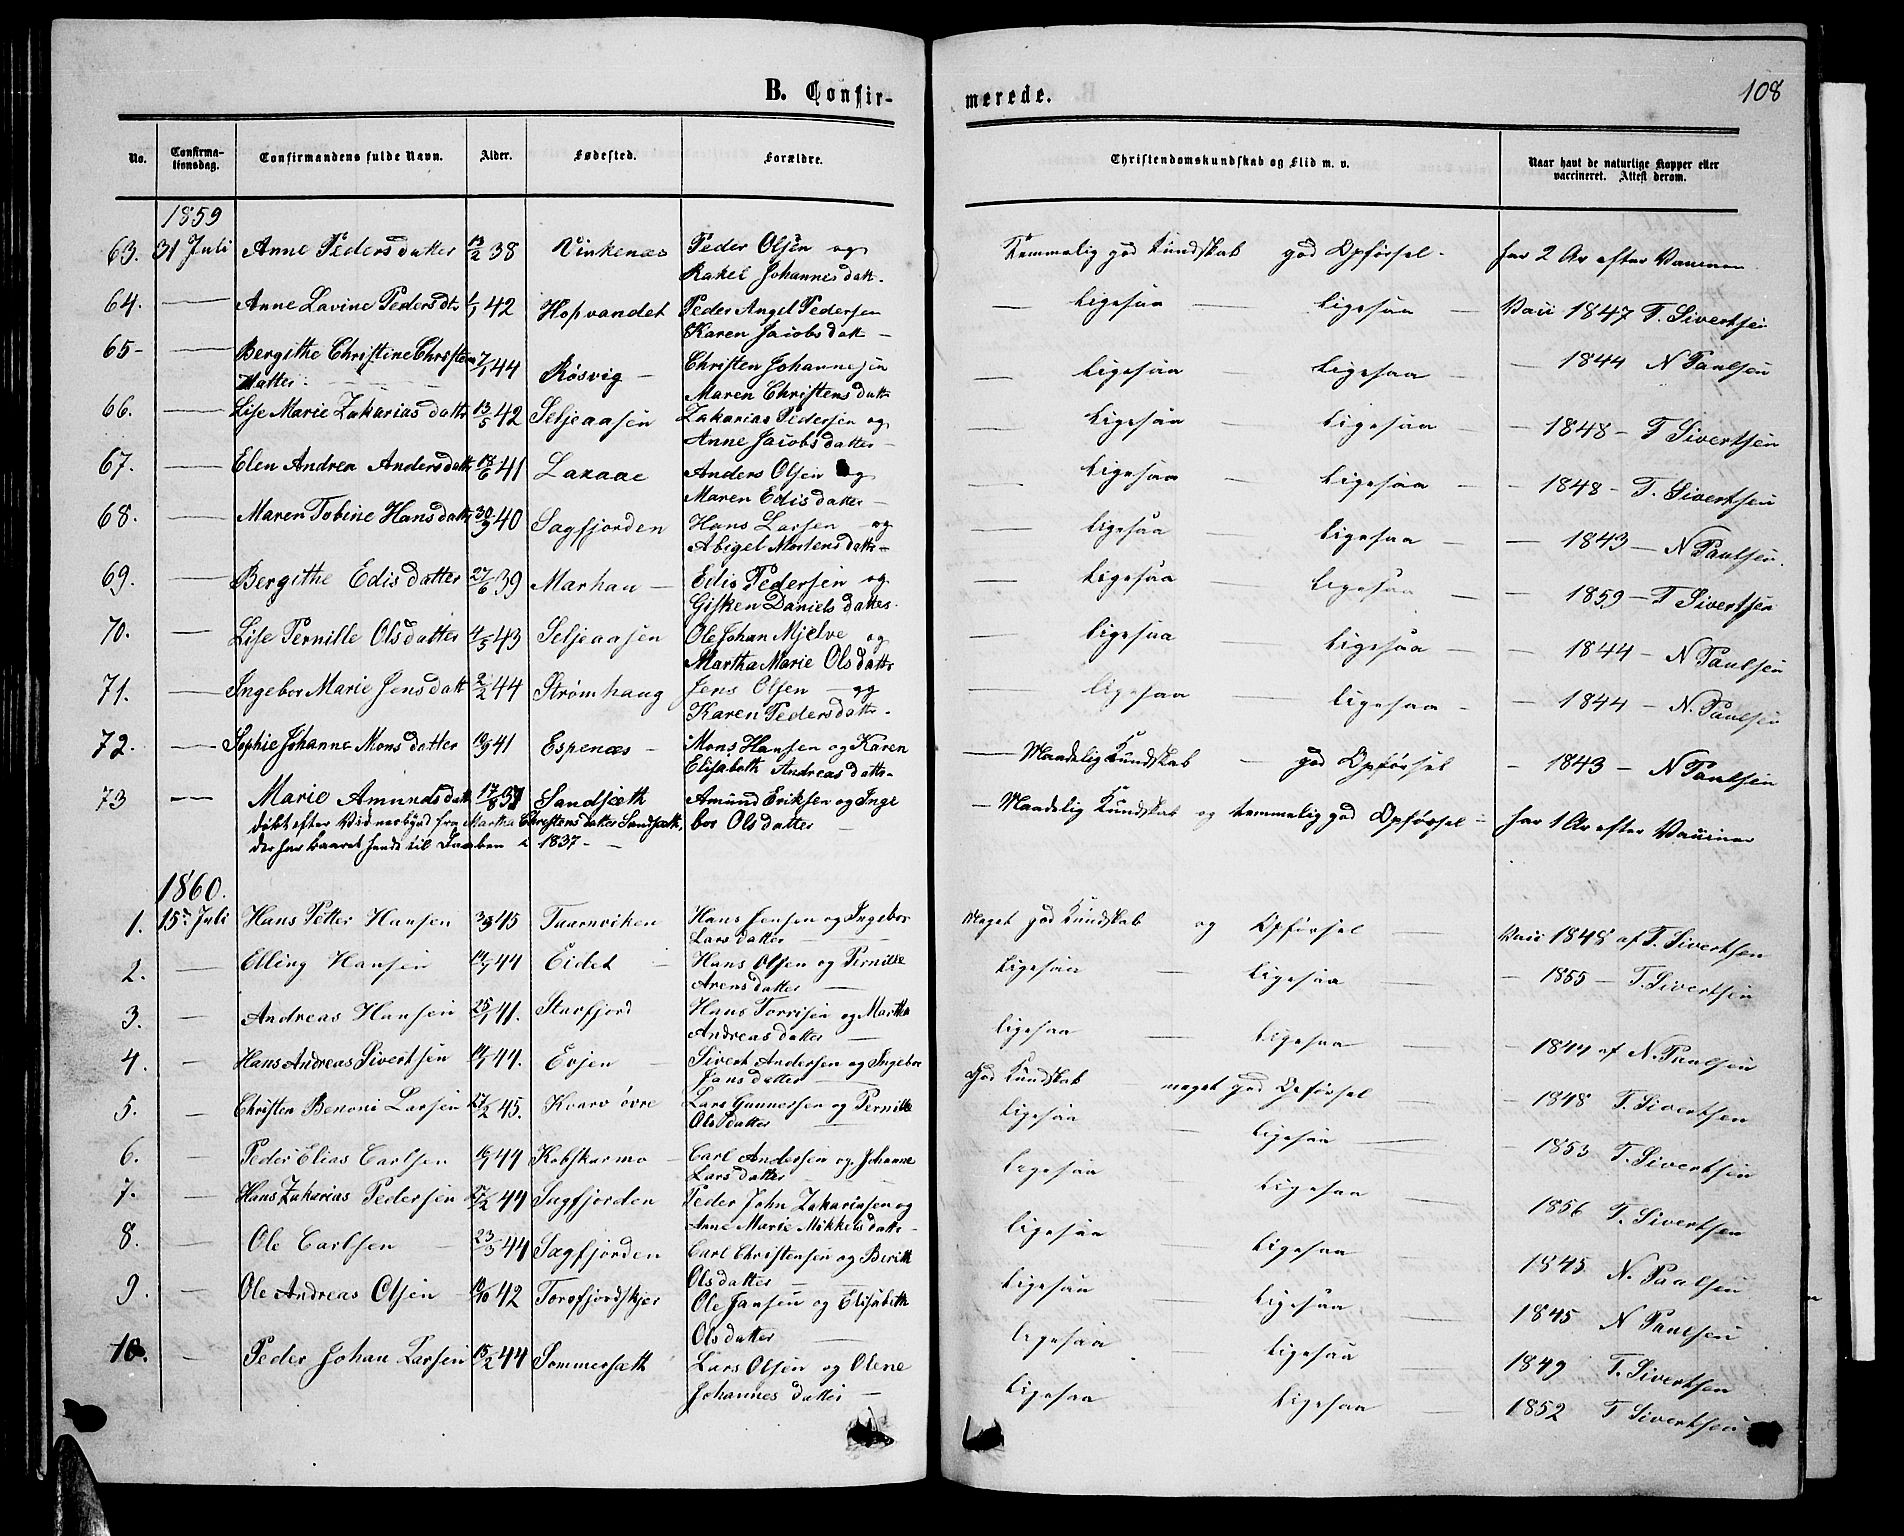 B. Confir-
merede.
108
No. Confirma-tionsdag. Confirmandens fulde Navn. Alder. Fødested. Forældre. Christendomskundskab og Flid m. v. Naar havt de naturlige Kopper eller vaccineret. Attest derom.
1859
63. 31 Juli Anne Pedersdatter 13/2 38 Vinkenæs Peder Olsen og Temmelig god Kundskab god Opførsel - har 2 Ar efter
Rakel Johannesdatt.
64. — Anne Lavine Pedersdtr 42 Hopvandet Peder Angel Pedersen — Ligesaa — Ligesaa — Vacc 1847 T. Sivertsen
Karen Jacobsdatt —
65 — Bergithe Christine Christens 7/1 44 Røsvig — Christen Johannesen — Ligesaa — Ligesaa — 1844 N Paulsen
datter. Maren Christensdatt
66. — Lise Marie Zakariasdattr 13/5 42 Seljeaasen Zakarias Pedersen og Ligesaa — Ligesaa — 1848 — T Sivertsen
Anne Jacobsdatter —
67. — Elen Andrea Andersdatt 18/6 41 Laxaae Anders Olsen og — Ligesaa — Ligesaa — 1848 — T. Sivertsen
Maren Edisdatter —
68. — Maren Tobine Hansdattr 30/9 40 Sagfjorden Hans Larsen — og — Ligesaa — Ligesaa — 1843 — N Paulsen.
Abigel Mortensdattr —
69. — Bergithe Edisdatter 27/6 39 Marhau — Edis Pedersen og — Ligesaa — Ligesaa — 1859 — T Sivertsen
Gisken Danielsdatter.
70. — Lise Pernille Olsdatter 4/5 43 Seljeaasen Ole Johan Mjelve og — Ligesaa — Ligesaa — 1844 — N Paulsen
Martha Marie Olsdattr
71. — Ingebor Marie Jensdatt 2/2 44 Strømhaug Jens Olsen — og — Ligesaa — Ligesaa — 1844 — N. Paulsen
Karen Pedersdattr.
72. — Sophie Johanne Monsdatter 10/9 41 Espenæs — Mons Hansen og Karen — Maadelig Kundskab — god Opførsel — 1843 — N Paulsen
Elisabeth Andreasdattr.
73 — Marie Amundsdatt 17/8 37 Sandsæth Amund Eriksen og Inge — Maadelig Kundskab og temmelig god Opførsel — har 1 Ar efter
døbt efter Vidnesbyrd fra Martha Christensdatter Sandsæth, bor Olsdatter —
der har baaret hende til Daaben i 1837 —
1860.
1. 15de Juli Hans Petter Hansen 3/3 45 Taarnviken Hans Jensen og Ingebor Meget god Kundskab og Opførsel — Vacc 1848 af T. Sivertsen
Larsdatter —
2. — Elling Hansen 14/7 44 Eidet — Hans Olsen og Pernille Ligesaa — Ligesaa — 1855 — T. Sivertsen
Arensdatter —
3. — Andreas Hansen 25/1 41. Storfjord Hans Torrisen og Martha Ligesaa — Ligesaa — 1844 af N. Paulsen
Andreasdatter —
4. — Hans Andreas Sivertsen 44. Evjen — Sivert Andersen og Ingebor God Kundskab meget god Opførsel — 1848 T. Sivertsen
Jansdatter —
5. — Christen Benoni Larsen 27/2 45. Kvarv øvre Lars Gunnersen og Pernille Ligesaa — Ligesaa — 1853 T. Sivertsen
Olsdatter —
6. — Peder Elias Carlsen 44 Kobskarmo — Carl Andersen og Johanne Ligesaa — Ligesaa — 1856 T. Sivertsen
Larsdatter —
7. — Hans Zakarias Pedersen 27/2 44 Sagfjorden Peder John Zakariasen og Ligesaa — Ligesaa — 1845 N. Paulsen
Anne Marie Mikkelsdattr —
8. — Ole Carlsen — 23/3 44 Sagfjorden Carl Christensen og Berith Ligesaa — Ligesaa — 1845 N Paulsen
Olsdatter —
9. — Ole Andreas Olsen — 19/10 42 Torsfjordskjer Ole Jansen og Elisabeth Ligesaa — Ligesaa — 1849 T. Sivertsen
Olsdatter —
10. — Peder Johan Larsen 15/2 44 Sommersæth Lars Olsen og Olene Ligesaa — Ligesaa — 1852 T Sivertsen
Johannesdatter —